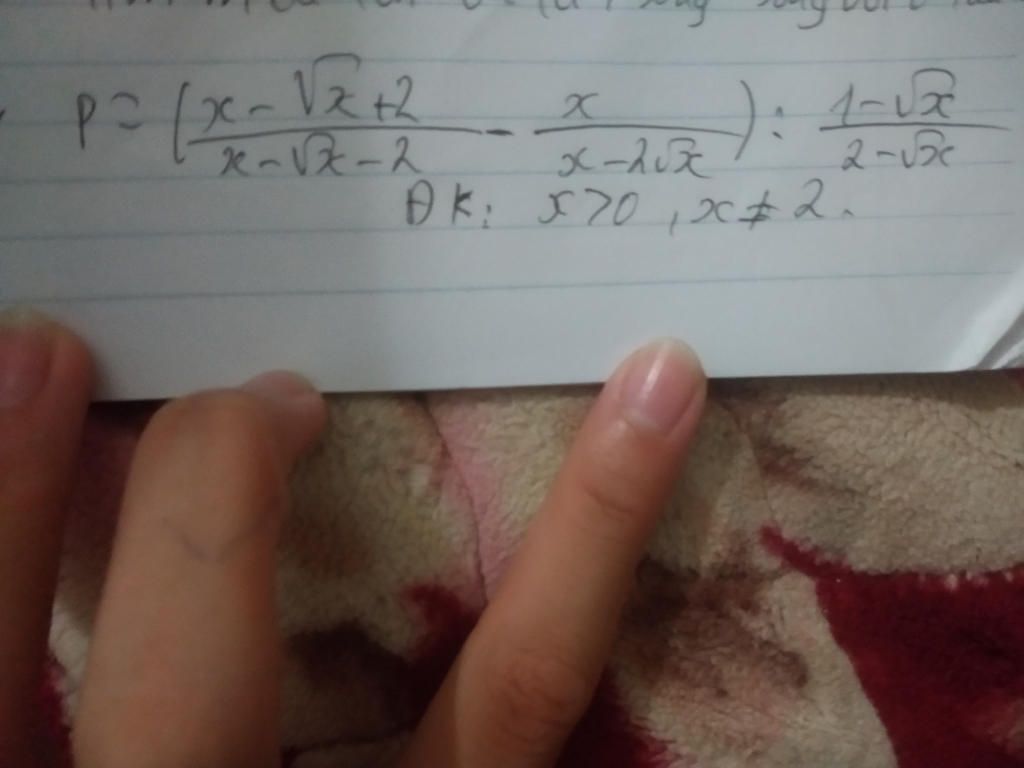 P = (x - √x + 2 / x - √x - 2 - x / x - 2√x) : 1 - √x / 2 - √x
ĐK: x > 0, x ≠ 2.